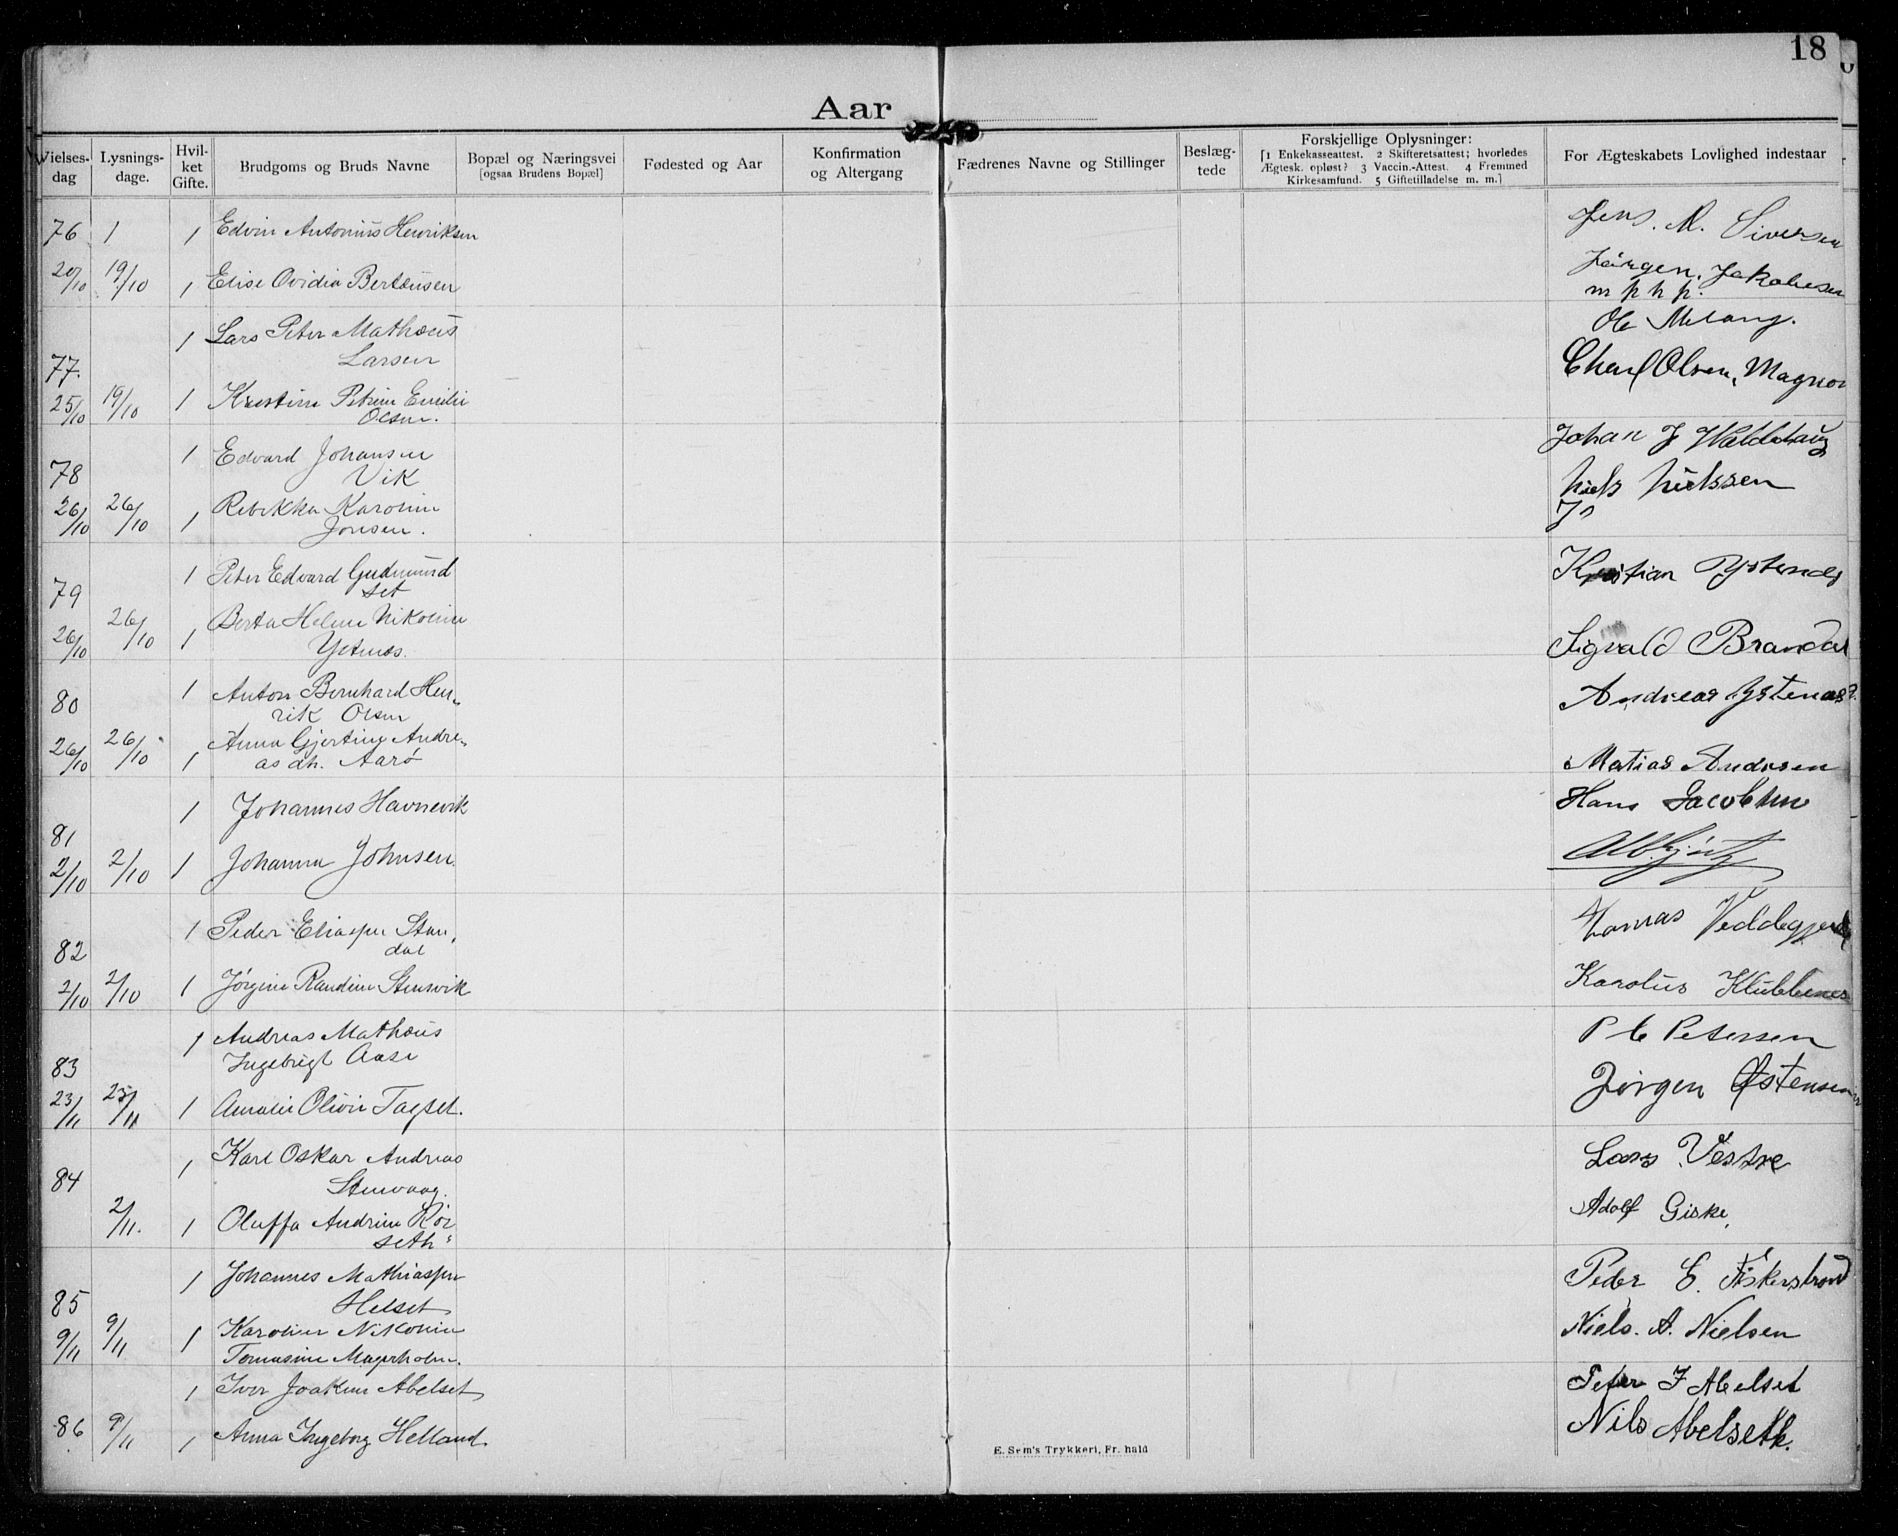 18
Aar
Vielses-dag
Lysnings-dage.
Hvil-ket Gifte.
Brudgoms og Bruds Navne
Bopæl og Næringsvei [ogsaa Brudens Bopæl]
Fødested og Aar
Konfirmation og Altergang
Fædrenes Navne og Stillinger
Beslæg-tede
Forskjellige Oplysninger:
[1 Enkekasseattest. 2 Skifteretsattest; hvorledes
Ægtesk. opløst? 3 Vaccin.-Attest. 4 Fremmed
Kirkesamfund. 5 Giftetilladelse m. m.]
For Ægteskabets Lovlighed indestaar
76 1 1 Edvin Antonius Henriksen
Jens. M. Siversen
20/10 19/10 1 Elise Ovidia Berteusen
Jørgen. Jakobsen
m p h p.
1 Lars Peter Mathæus
Larsen
Ole
77.
Charl Olsen, Magnor
25/10 19/10 1 Kristine Petrine Emilie
Olsen.
1 Edvard Johansen
Vik
Johan J
78
Niels Nielssen
26/10 26/10 1 Rebekka Karoline
Jonsen.
1 Peter Edvard Gudmund
set
Kristian Ystenes
79
26/10 26/10 1 Berta Helene Nikoline
Ystnes.
Sigvald Brandal
80 1 Anton Bernhard Hen
rik Olsen
Andreas Ystenes
26/10 26/10 1 Anna Gjertine Andre
as dtr. Aarø
Matias Andresen
1 Johannes Havnevik
Hans Jacobsen
81
2/10 2/10 1 Johanna Johnsen.
82 1 Peder Eliassen Stan
dal
Veddegjerde
2/10 2/10 1 Jørgine Randine Stensvik
Karolius Klubbenes
83 1 Andreas Mathæus
Ingebrigt Aase
P C Petersen
23/11 23/11 1 Amalie Olivie Tagset.
Jørgen Østensen
84 1 Karl Oskar Andreas
Stenvaag.
Lars Vestre
2/11. 1 Oluffa Andrine Rør
seth
Adolf Giske,
85 1 Johannes Mathiassen
Helset
Peder E. Fiskerstrand
9/11 9/11 1 Karoline Nikoline
Tomasine Magerholm.
Niels. A. Nielsen
1 Iver Joakim Abelset
Peter I Abelset
86 9/11 1 Anna Ingeborg Helland
Nils Abelseth.
E. Sem's Trykkeri, Fr. hald